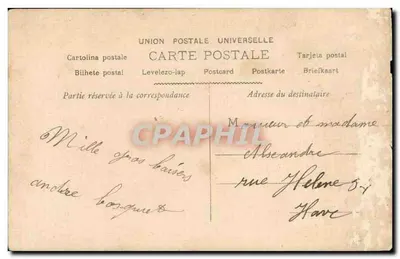 UNION POSTALE UNIVERSELLE
CARTE POSTALE
Cartolina postale
Tarjeta postal
Bilhete postal
Levelezo-lap
Postcard
Postkarte
Briefkaart
Partie réservée à la correspondance
Adresse du destinataire
CPAPHIL
Mille gros baisers
andre bosquet
Monsieur et madame
Alexandre
rue Helene
Havre